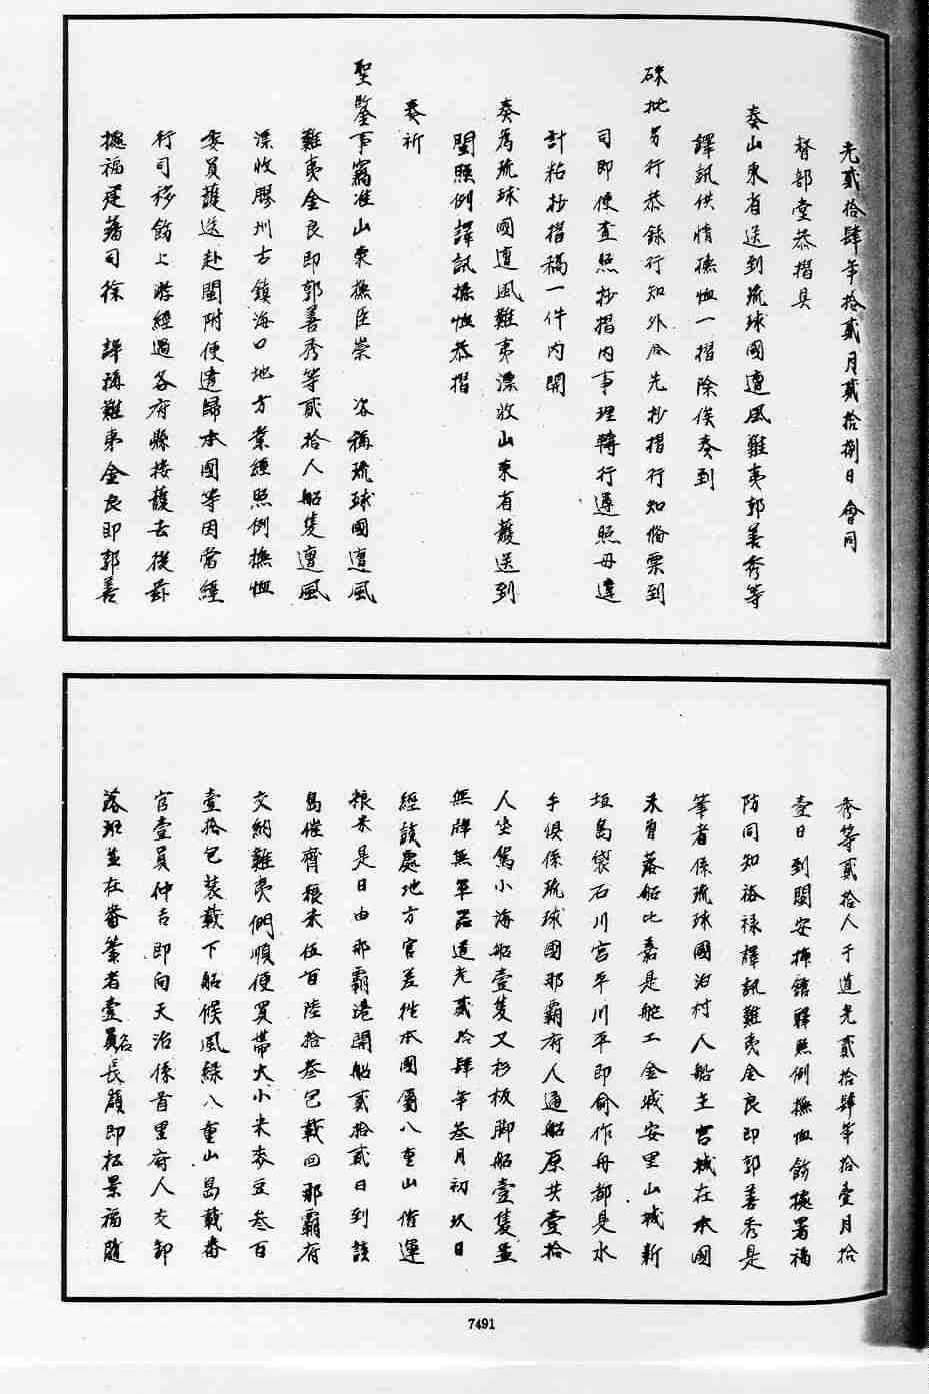 光貳拾肆年拾貳月貳拾捌日會同
督部堂恭摺具
奏山東省送到琉球國遭風難夷郭善秀等
譯訊供情撫恤一摺除俟奏到
硃批另行恭錄行知外合先抄摺行知備票到
司即便查照抄摺內事理轉行遵照毋違
計粘抄摺稿一件內開
奏為琉球國遭風難夷漂收山東省護送到
閩照例譯訊撫恤恭摺
奏祈
聖鑒事竊准山東撫臣崇 咨稱琉球國遭風
難夷金良即郭善秀等貳拾人船隻遭風
漂收膠州古鎮海口地方業經照例撫恤
委員護送赴閩附便遣歸本國等因當經
行司移飭上游經過各府縣接護去後茲
據福建藩司徐 詳稱難夷金良即郭善
秀等貳拾人于道光貳拾肆年拾壹月拾
壹日到閩安插館驛照例撫恤飭據署福
防同知裕祿譯訊難夷金良即郭善秀是
筆者係琉球國泊村人船主宮城在本國
未曾落船比嘉是舵工金城安里山城新
垣島袋石川宮平川平即俞作舟都是水
手俱係琉球國那霸府人通船原共壹拾
人坐駕小海船壹隻又杉板脚船壹隻並
無牌無軍器道光貳拾肆年叁月初玖日
經該處地方官差往本國屬八重山催運
粮米是日由那霸港開船貳拾貳日到該
島催齊粮米伍百陸拾叁包載回那霸府
交納難夷們順便買帶大小米麥豆叁百
壹拾包裝載下船候風緣八重山島載番
官壹員仲吉即向天治係首里府人交卸
落班並在番筆者壹員名長願即松景福隨
7491